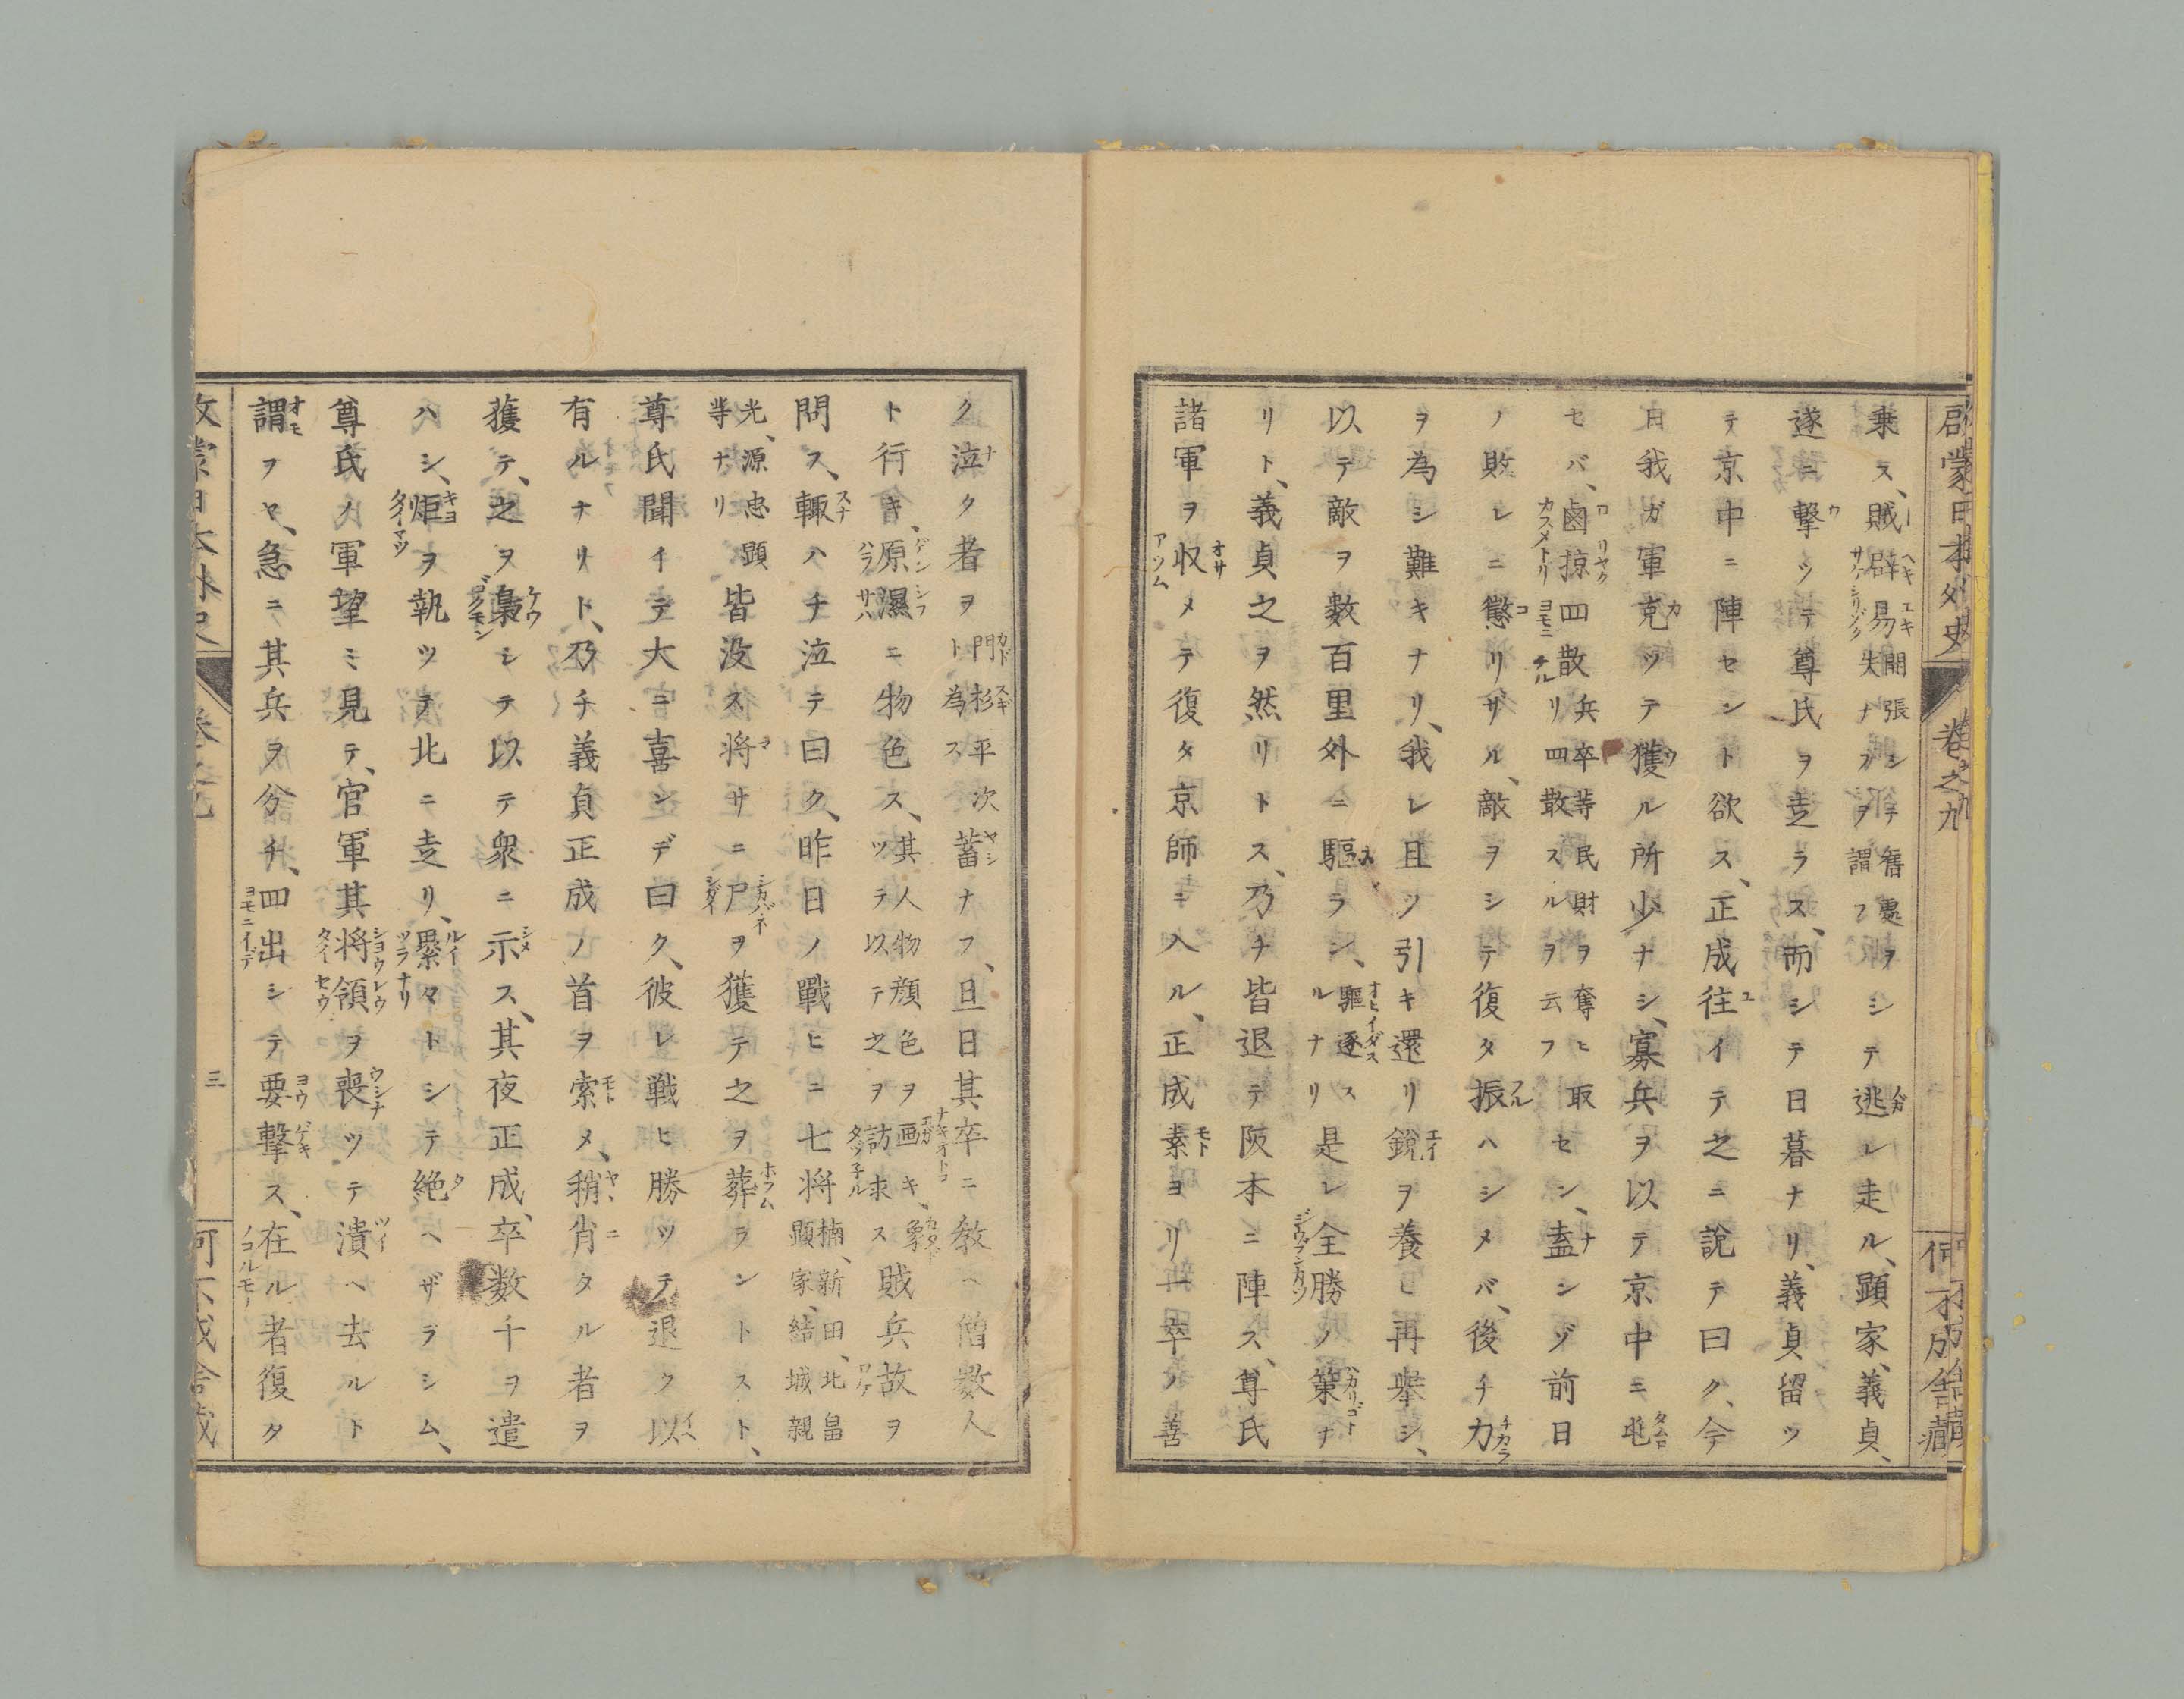 啓蒙日本外史 卷之九 何不成舎藏
乗ス、賊辟易開張シテ舊憲ヲ失ナフヲ謂フシテ逃レ走ル、顕家、義貞、
遂ニ撃ツテ尊氏ヲ走ラス、而シテ日暮ナリ、義貞留ツ
テ京中ニ陣セント欲ス、正成往イテ之ニ説テ曰ク、今
日我ガ軍克ツテ獲ル所少ナシ、寡兵ヲ以テ京中ニ屯
セバ、鹵掠四散兵卒等民財ヲ奪ヒ取リ四散スルヲ云フセン、盍シゾ前日
ノ敗レニ懲リザル、敵ヲシテ復タ振ハシメバ、後チ力
ヲ為シ難キナリ、我レ且ツ引キ還リ鋭ヲ養ヒ再擧シ、
以テ敵ヲ數百里外ニ驅ラン、驅逐スルナリ是レ全勝ノ策ナ
リト、義貞之ヲ然リトス、乃ナ皆退テ阪本ニ陣ス、尊氏
諸軍ヲ収メテ復タ京師ニ入ル、正成素ヨリ一卒ノ善
ク泣ク者ヲ門杉平次ト為ス蓄ナフ、旦日其卒ニ教ヘ僧數人
ト行キ、原濕ニ物色ス、其人物顔色ヲ画キ、象ツテ以テ之ヲ訪求ス賊兵故ヲ
問ス、輙ハチ泣テ曰ク、昨日ノ戰ヒニ七将楠、新田、北畠顯家、結城親
光、源忠顕等ナリ皆没ス、将サニ尸ヲ獲テ之ヲ葬ラントスト、
尊氏聞イテ大ニ喜ンデ曰ク、彼レ戦ヒ勝ツテ退ク以
有ルナリト、乃チ義貞正成ノ首ヲ索メ、稍肖タル者ヲ
獲テ、之ヲ梟シテ以テ衆ニ示ス、其夜正成、卒数千ヲ遣
ハシ、炬ヲ執ツテ北ニ走リ、纍々トシテ絶ヘザラシム、
尊氏ノ軍望ミ見テ、官軍其将領ヲ喪ツテ潰ヘ去ルト
謂フヤ、急ニ其兵ヲ分チ、四出シテ要撃ス、在ル者復タ
三